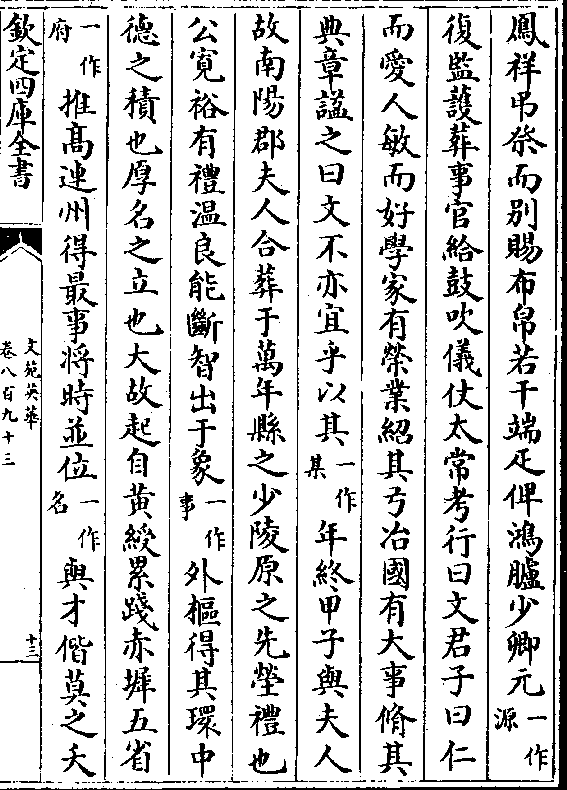 鳳祥弔祭而别賜布帛若干端疋俾鴻臚少卿元一作源
復監䕶葬事官給鼓吹儀仗太常考行曰文君子曰仁
而愛人敏而好學家有榮業紹其弓冶國有大事脩其
典章諡之曰文不亦宜乎以其一作某年終甲子與夫人
故南陽郡夫人合葬于萬年縣之少陵原之先塋禮也
公寛裕有禮温良能斷智出于象一作事外樞得其環中
德之積也厚名之立也大故起自黄綬累踐赤墀五省
一作府推髙連州得最事将時並位一作名與才偕莫之夭
欽定四庫全書
文苑英華
卷八百九十三
十三